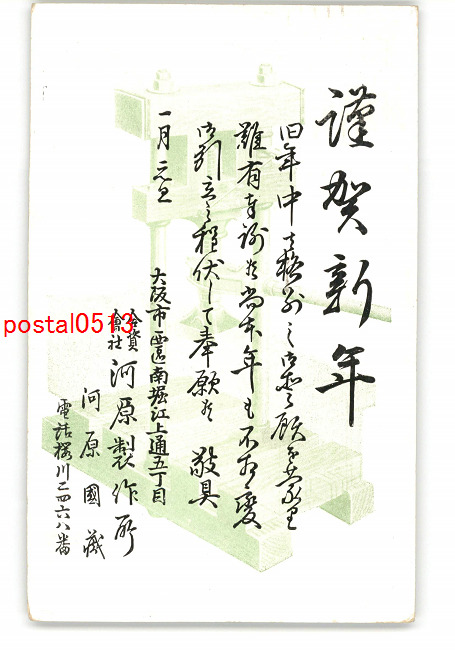 謹賀新年
旧年中ハ格別之御愛顧を蒙り
難有奉謝候尚本年も不相変
御引立之程伏して奉願候 敬具
一月元旦
大阪市西區南堀江上通五丁目
合資會社 河原製作所
河原國藏
電話櫻川二四六八番
postal0513